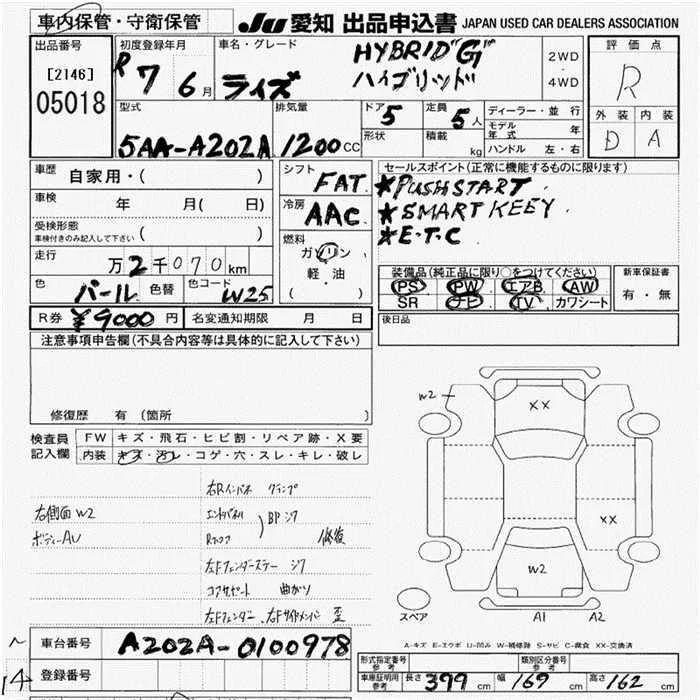 車内保管・守衛保管
JU 愛知 出品申込書 JAPAN USED CAR DEALERS ASSOCIATION
出品番号
[2146]
05018
初度登録年月
R 7 6 月
車名・グレード
ライズ
HYBRID"G"
ハイブリッド
2WD
・
4WD
評価点
R
外装 内装
D A
型式
5AA-A202A
排気量
1200 CC
ドア 5
形状
定員 5 人
積載 kg
ディーラー・並行
モデル年式 年
ハンドル 左・右
車歴
自家用・( )
車検 年 月( 日)
受検形態
車検付きのみ記入して下さい ( )
走行 万 2 千 070 km
色 パール 色替 色コード W25
シフト
FAT
冷房
AAC
燃料
ガソリン
軽・油
( )
セールスポイント(正常に機能するものに限ります)
★PUSH START.
★SMART KEEY.
★E・T・C
装備品(純正品に限り○をつけてください)
PS PW エアB AW
SR ナビ TV カワシート
新車保証書
有・無
R券 ¥9000 円 名変通知期限 月 日
後日品
注意事項申告欄(不具合内容等は具体的に記入して下さい)
修復歴 有(箇所 )
検査員
記入欄
FW キズ・飛石・ヒビ割・リペア跡・X要
内装 キズ・汚レ・コゲ・穴・スレ・キレ・破レ
右側面 W2
ボディーAU
右Rインパネ クランプ
エンドパネル
Rフロア
BP ジワ
修復
左Fフェンダーステー ジワ
コアサポート 曲がり
左Fフェンダー、左Fサイドメンバー 歪
W2
XX
XX
W2
スペア
A1 A2
A-キズ E-エクボ U-凹み W-補修跡 S-サビ C-腐食 XX-交換済
車台番号 A202A-0100978
14
登録番号
形式指定番号
参考
類別区分番号
参考
車庫証明用
参考
長さ 399 cm 幅 169 cm 高さ 162 cm